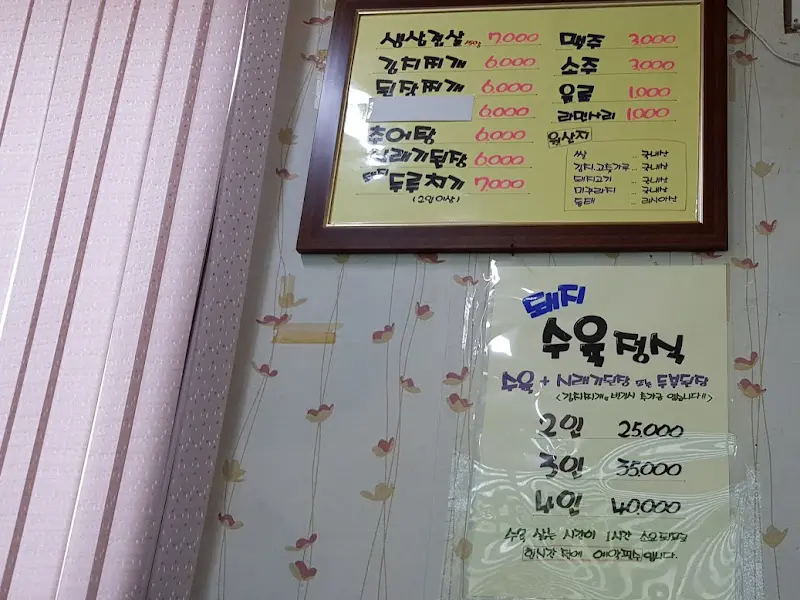 생삼겹살 150g 7,000
김치찌개 6,000
된장찌개 6,000
6,000
추어탕 6,000
시래기된장 6,000
돼지 두루치기 7,000
(2인 이상)
맥주 3,000
소주 3,000
음료 1,000
라면사리 1,000
원산지
쌀 .. 국내산
김치.고춧가루 .. 국내산
돼지고기 .. 국내산
미꾸라지 .. 국내산
동태 .. 러시아산
돼지
수육정식
수육 + 시래기된장 또는 두부된장
<김치찌개로 변경시 추가금 있습니다!!>
2인 25,000
3인 35,000
4인 40,000
수육 삶는 시간이 1시간 소요되오니
1시간 전에 예약필수입니다.